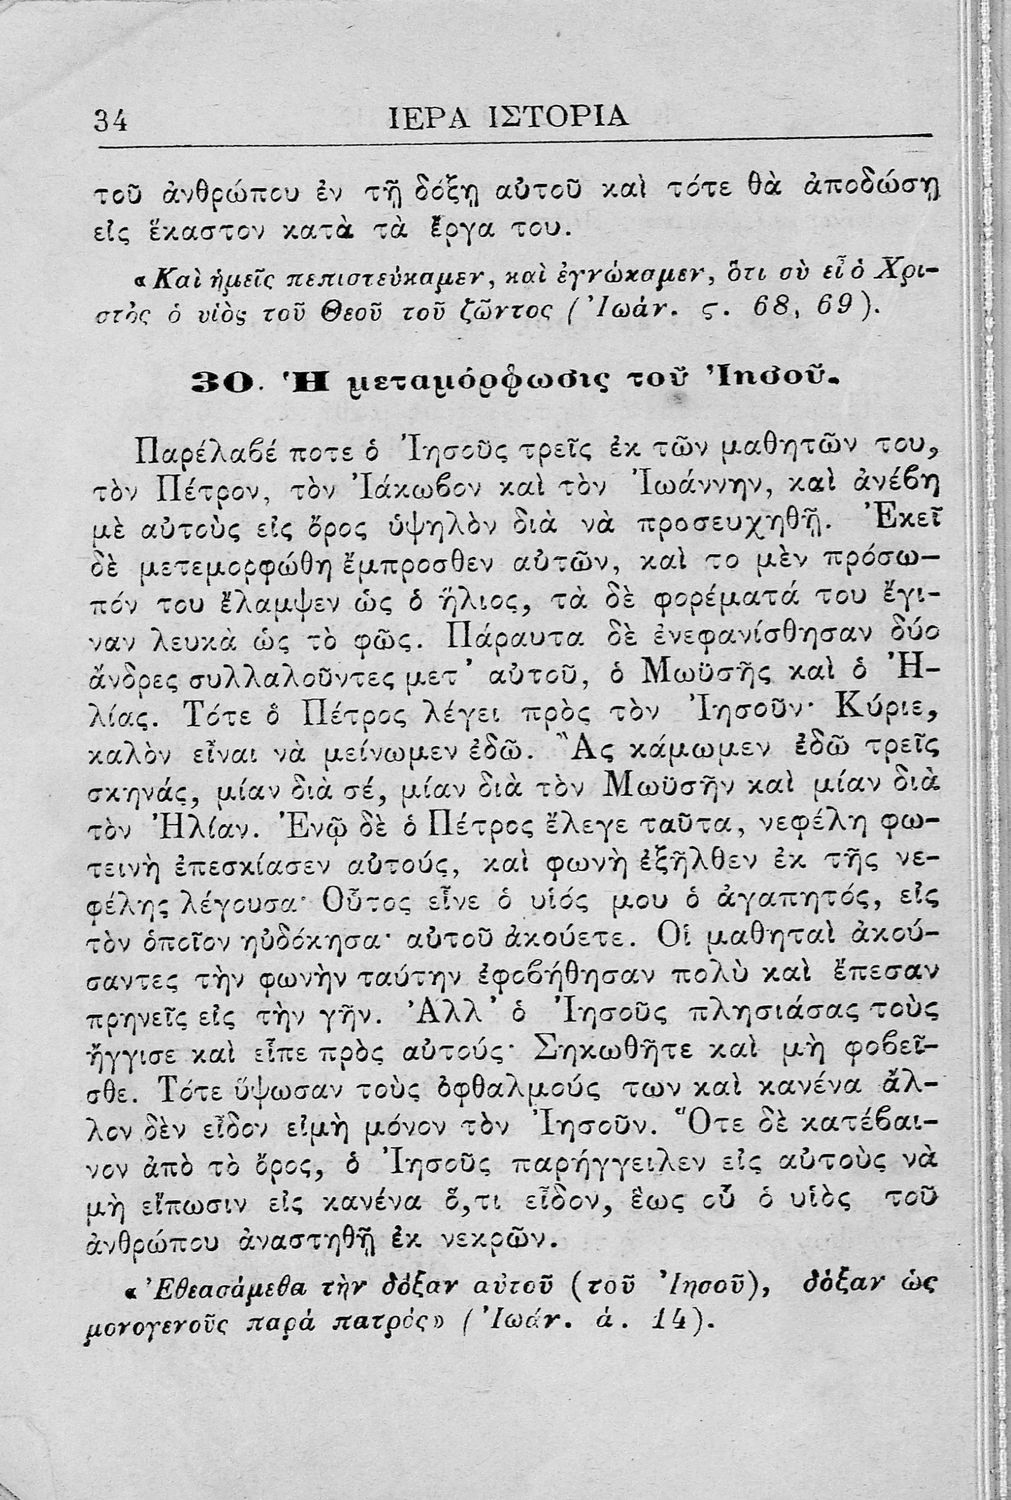 34 ΙΕΡΑ ΙΣΤΟΡΙΑ
τοῦ ἀνθρώπου ἐν τῇ δόξῃ αὐτοῦ καὶ τότε θὰ ἀποδώσῃ
εἰς ἕκαστον κατὰ τὰ ἔργα του.
«Καὶ ἡμεῖς πεπιστεύκαμεν, καὶ ἐγνώκαμεν, ὅτι σὺ εἶ ὁ Χρι-
στὸς ὁ υἱὸς τοῦ Θεοῦ τοῦ ζῶντος (Ἰωάν. ς. 68, 69).
30. Ἡ μεταμόρφωσις τοῦ Ἰησοῦ.
Παρέλαβέ ποτε ὁ Ἰησοῦς τρεῖς ἐκ τῶν μαθητῶν του,
τὸν Πέτρον, τὸν Ἰάκωβον καὶ τὸν Ἰωάννην, καὶ ἀνέβη
μὲ αὐτοὺς εἰς ὄρος ὑψηλὸν διὰ νὰ προσευχηθῇ. Ἐκεῖ
δὲ μετεμορφώθη ἔμπροσθεν αὐτῶν, καὶ το μὲν πρόσω-
πόν του ἔλαμψεν ὡς ὁ ἥλιος, τὰ δὲ φορέματά του ἔγι-
ναν λευκὰ ὡς τὸ φῶς. Πάραυτα δὲ ἐνεφανίσθησαν δύο
ἄνδρες συλλαλοῦντες μετ᾿ αὐτοῦ, ὁ Μωϋσῆς καὶ ὁ Ἠ-
λίας. Τότε ὁ Πέτρος λέγει πρὸς τὸν Ἰησοῦν· Κύριε,
καλὸν εἶναι νὰ μείνωμεν ἐδῶ. Ἂς κάμωμεν ἐδῶ τρεῖς
σκηνάς, μίαν διὰ σέ, μίαν διὰ τὸν Μωϋσῆν καὶ μίαν διὰ
τὸν Ἠλίαν. Ἐνῷ δὲ ὁ Πέτρος ἔλεγε ταῦτα, νεφέλη φω-
τεινὴ ἐπεσκίασεν αὐτούς, καὶ φωνὴ ἐξῆλθεν ἐκ τῆς νε-
φέλης λέγουσα· Οὗτος εἶνε ὁ υἱός μου ὁ ἀγαπητός, εἰς
τὸν ὁποῖον ηὐδόκησα· αὐτοῦ ἀκούετε. Οἱ μαθηταὶ ἀκού-
σαντες τὴν φωνὴν ταύτην ἐφοβήθησαν πολὺ καὶ ἔπεσαν
πρηνεῖς εἰς τὴν γῆν. Ἀλλ᾿ ὁ Ἰησοῦς πλησιάσας τοὺς
ἤγγισε καὶ εἶπε πρὸς αὐτούς· Σηκωθῆτε καὶ μὴ φοβεῖ-
σθε. Τότε ὕψωσαν τοὺς ὀφθαλμούς των καὶ κανένα ἄλ-
λον δὲν εἶδον εἰμὴ μόνον τὸν Ἰησοῦν. Ὅτε δὲ κατέβαι-
νον ἀπὸ τὸ ὄρος, ὁ Ἰησοῦς παρήγγειλεν εἰς αὐτοὺς νὰ
μὴ εἴπωσιν εἰς κανένα ὅ,τι εἶδον, ἕως οὗ ὁ υἱὸς τοῦ
ἀνθρώπου ἀναστηθῇ ἐκ νεκρῶν.
«Ἐθεασάμεθα τὴν δόξαν αὐτοῦ (τοῦ Ἰησοῦ), δόξαν ὡς
μονογενοῦς παρὰ πατρός» (Ἰωάν. ά. 14).